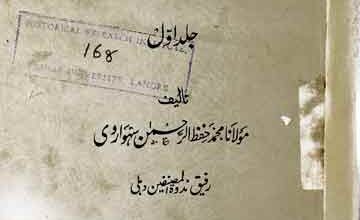 جلد اول
HISTORICAL RESEARCH
168
UNIVERSITY, LAHORE
تالیف
مولانا محمد حفظ الرحمٰن سیوہاروی
رفیق ندوۃ المصنفین دہلی